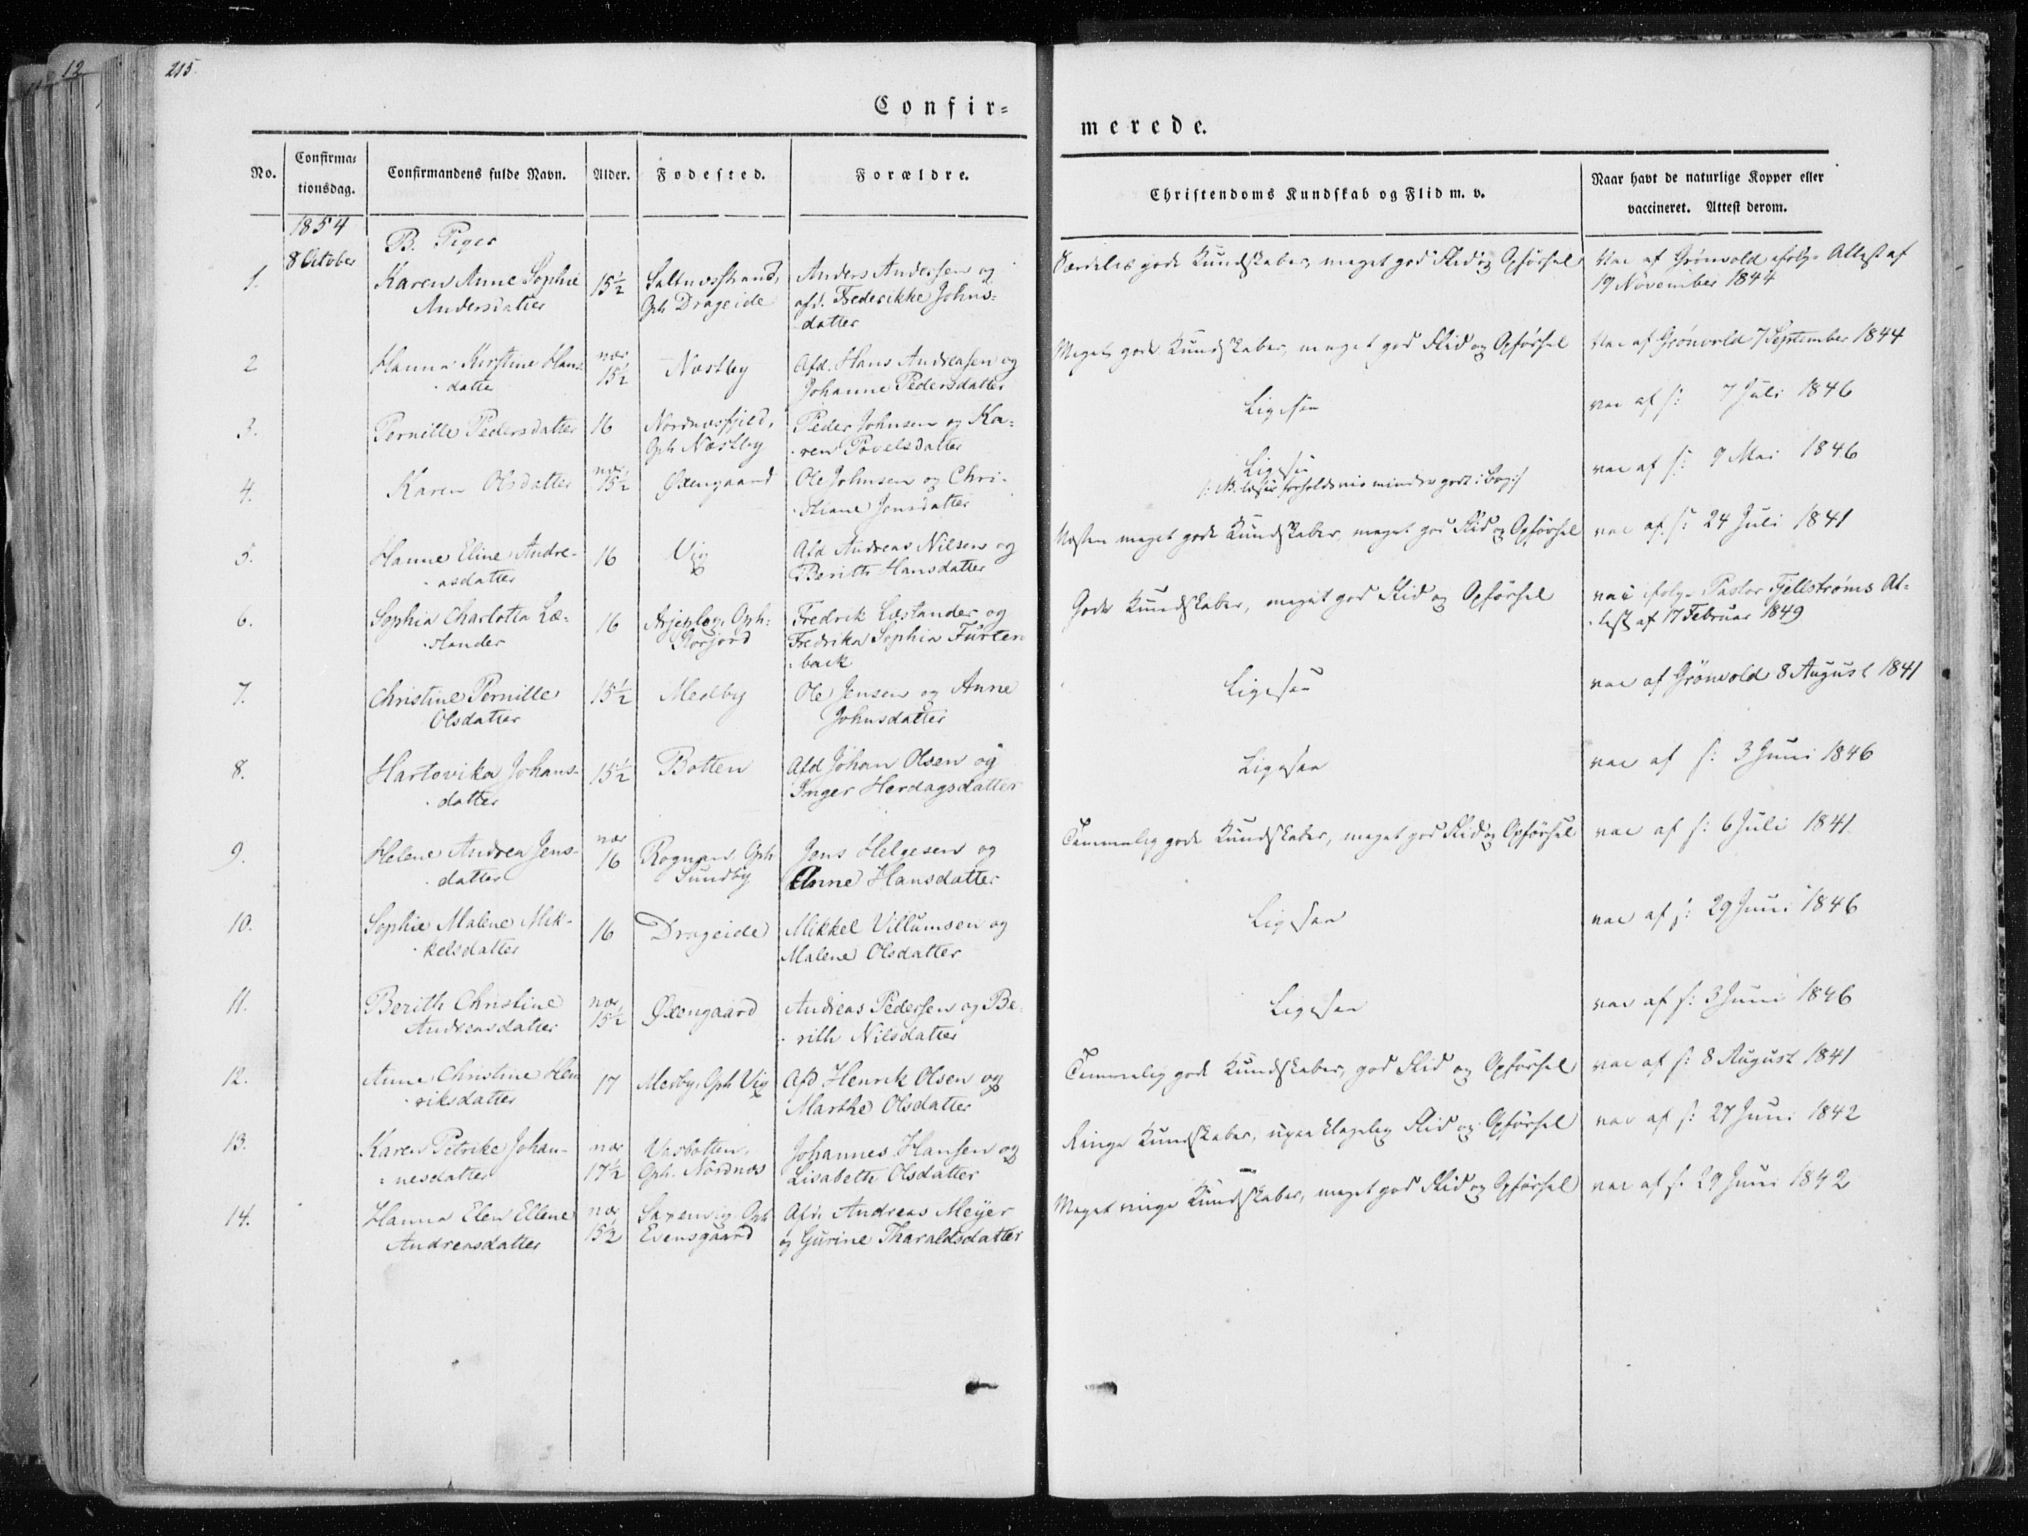 12
215.
Confir=
merede.
No.
Confirma=
tionsdag.
Confirmandens fulde Navn.
Alder.
Fødested.
Forældre.
Christendoms Kundskab og Flid m. v.
Naar havt de naturlige Kopper eller
vaccineret. Attest derom.
1854
B. Piger
8 October
1. Karen Anne Sophie 15½ Saltnesstrand, Anders Andersen og Særdeles gode Kundskaber, meget god Flid og Opførsel Vac af Grönvold ifølge Attest af
Andersdatter Oph Drageide afd. Frederikke Johns= 19 November 1844
datter
2 Hanna Kirstine Hans= nær 15½ Næstby Afd. Hans Andreasen og Meget gode Kundskaber, meget god Flid og Opførsel Vac af Grönvold 7 September 1844
datter Johanne Pedersdatter
3. Pernille Pedersdatter 16 Nordnæsfjeld, Peder Johnsen og Ka= Ligesaa vac af s: 7 Juli 1846
Oph Næstby ren Povelsdatter
4. Karen Olsdatter nær 15½ Øxengaard Ole Johnsen og Chri- Ligesaa vac af s: 9 Mai 1846
stiane Jensdatter /: NB. læser forholdsvis mindre godt i Bog :/
5. Hanne Eline Andre- 16 Vig Afd Andreas Nilsen og Næsten meget gode Kundskaber, meget god Flid og Opførsel vac af s: 24 Juli 1841
asdatter Berith Hansdatter
6. Sophia Charlotta Læ- 16 Arjeplog, Oph. Fredrik Læstander og Gode Kundskaber, meget god Flid og Opførsel vac ifølge Pastor Fjellströms At-
stander Storjord Fredrika Sophia Fürten test af 17 Februar 1849
back
7. Christine Pernille 15½ Medby Ole Jensen og Anne Ligesaa vac af Grönvold 8 August 1841
Olsdatter Johnsdatter
8. Hartvika Johans- 15½ Botten Afd Johan Olsen og Ligesaa vac af s: 3 Juni 1846
datter Inger Herdagsdatter
9. Helene Andrea Jens- nær 16 Rognan, Oph Jens Helgesen og Temmelig gode Kundskaber, meget god Flid og Opførsel vac af s: 6 Juli 1841.
datter Sundby Anne Hansdatter
10. Sophie Malene Mik- 16 Drageide Mikkel Villumsen og Ligesaa vac af s: 29 Juni 1846
kelsdatter Malene Olsdatter
11. Berith Christine nær 15½ Øxengaard Andreas Pedersen og Be Ligesaa vac af s: 3 Juni 1846
Andreasdatter rith Nilsdatter
12. Anne Christine Hen 17 Mesby, Oph Vig Afd Henrik Olsen og Temmelig gode Kundskaber, god Flid og Opførsel vac af s: 8 August 1841
riksdatter Marthe Olsdatter
13. Karen Petrike Johan- nær 17½ Vasbotten, Johannes Hansen og Ringe Kundskaber, upaaklagelig Flid og Opførsel vac af s: 27 Juni 1842
nesdatter Oph. Nordnæs Lisabeth Olsdatter
14. Hanna Elen Ellene nær 15½ Saxenvig Oph Afd. Andreas Meyer Meget ringe Kundskaber, meget god Flid og Opførsel vac af s. 29 Juni 1842
Andreasdatter Evensgaard og Gurine Tharaldsdatter